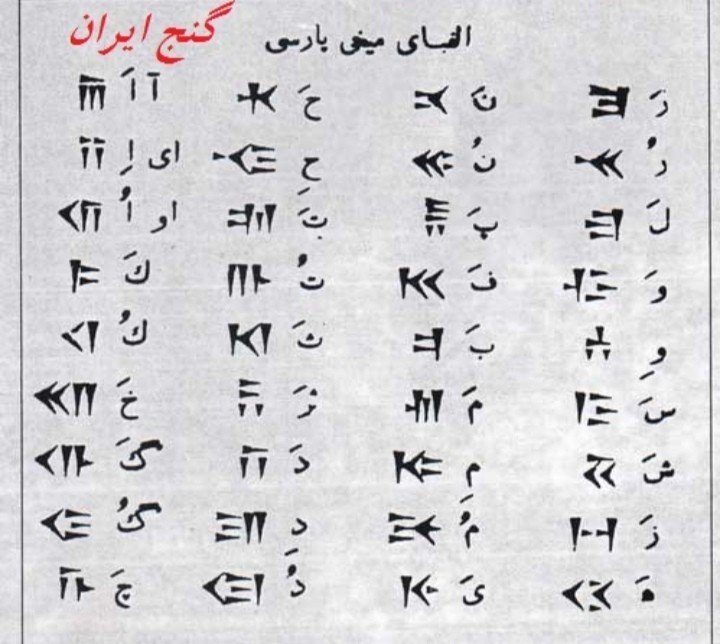 گنج ایران
الفبای میخی پارسی
رَ 𐎼 نَ 𐎴 حَ 𐎩 آ اَ 𐎠
رُ 𐎽 نُ 𐎵 حِ 𐎪 ای اِ 𐎡
لَ 𐎾 پَ 𐎱 تَ 𐎫 او اُ 𐎢
وَ 𐎺 فَ 𐎳 تُ 𐎬 كَ 𐎣
وِ 𐎻 بَ 𐎲 ثَ 𐎰 كُ 𐎤
سَ 𐎿 مَ 𐎶 ثرَ 𐏂 خَ 𐎧
شَ 𐏁 مِ 𐎷 دَ 𐎭 گَ 𐎥
زَ 𐏀 مُ 𐎸 دِ 𐎮 گُ 𐎦
هَ 𐏃 یَ 𐎹 دُ 𐎯 چَ 𐎨